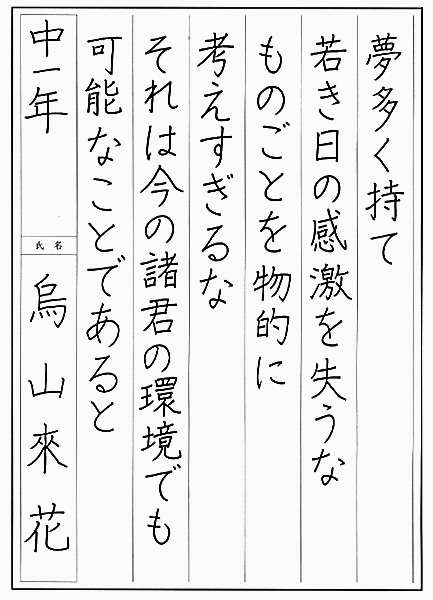 夢多く持て
若き日の感激を失うな
ものごとを物的に
考えすぎるな
それは今の諸君の環境でも
可能なことであると
中一年
氏名
烏山來花